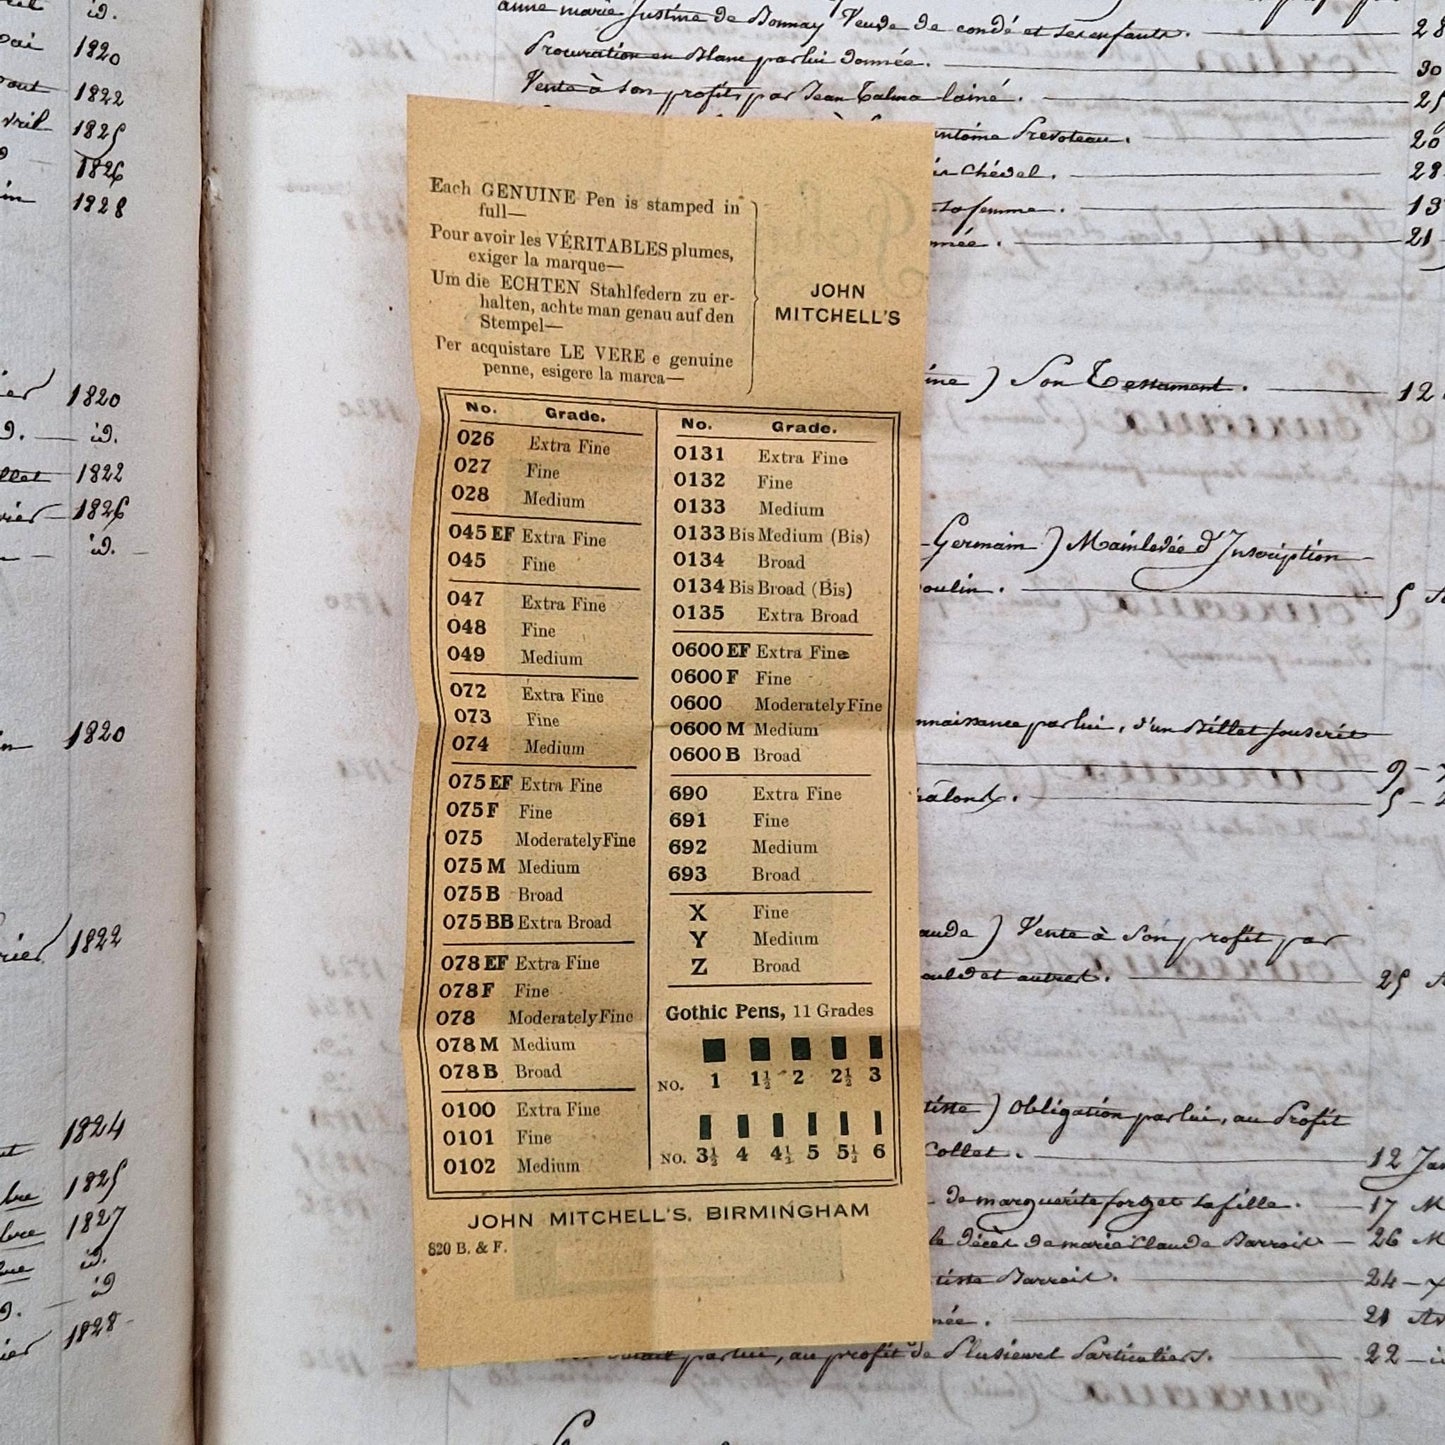 Each GENUINE Pen is stamped in
full—
Pour avoir les VÉRITABLES plumes,
exiger la marque—
Um die ECHTEN Stahlfedern zu er-
halten, achte man genau auf den
Stempel—
Per acquistare LE VERE e genuine
penne, esigere la marca—
JOHN
MITCHELL'S
No. Grade.
026 Extra Fine
027 Fine
028 Medium
045 EF Extra Fine
045 Fine
047 Extra Fine
048 Fine
049 Medium
072 Extra Fine
073 Fine
074 Medium
075 EF Extra Fine
075 F Fine
075 Moderately Fine
075 M Medium
075 B Broad
075 BB Extra Broad
078 EF Extra Fine
078 F Fine
078 Moderately Fine
078 M Medium
078 B Broad
0100 Extra Fine
0101 Fine
0102 Medium
No. Grade.
0131 Extra Fine
0132 Fine
0133 Medium
0133 Bis Medium (Bis)
0134 Broad
0134 Bis Broad (Bis)
0135 Extra Broad
0600 EF Extra Fine
0600 F Fine
0600 Moderately Fine
0600 M Medium
0600 B Broad
690 Extra Fine
691 Fine
692 Medium
693 Broad
X Fine
Y Medium
Z Broad
Gothic Pens, 11 Grades
NO. 1 1½ 2 2½ 3
NO. 3½ 4 4½ 5 5½ 6
JOHN MITCHELL'S, BIRMINGHAM
820 B. & F.
id.
1820
1822
1825
1826
1828
1820
id.
1822
1826
id.
1820
1822
1824
1825
1827
id.
id
1828
anne marie Justine de Bonnay Veuve de condé et ses enfants. 28
Procuration en Blanc par lui donnée. 30
Vente à son profit, par Jean Talma l'ainé. 25
Prevoteau. 20
Chével. 28
sa femme. 13
21
) Son Testament. 12
Germain ) Mainlevée d'Inscription
5
par lui, d'un Billet souscrit
9
5
) Vente à son profit par
et autres. 25
) Obligation par lui, au Profit
Collet. 12 Jan
de marguerite forget sa fille. 17 M
décès de marie Claude Barroit 26 M
Barroit. 24
21
par lui, au profit de Plusieurs Particuliers. 22